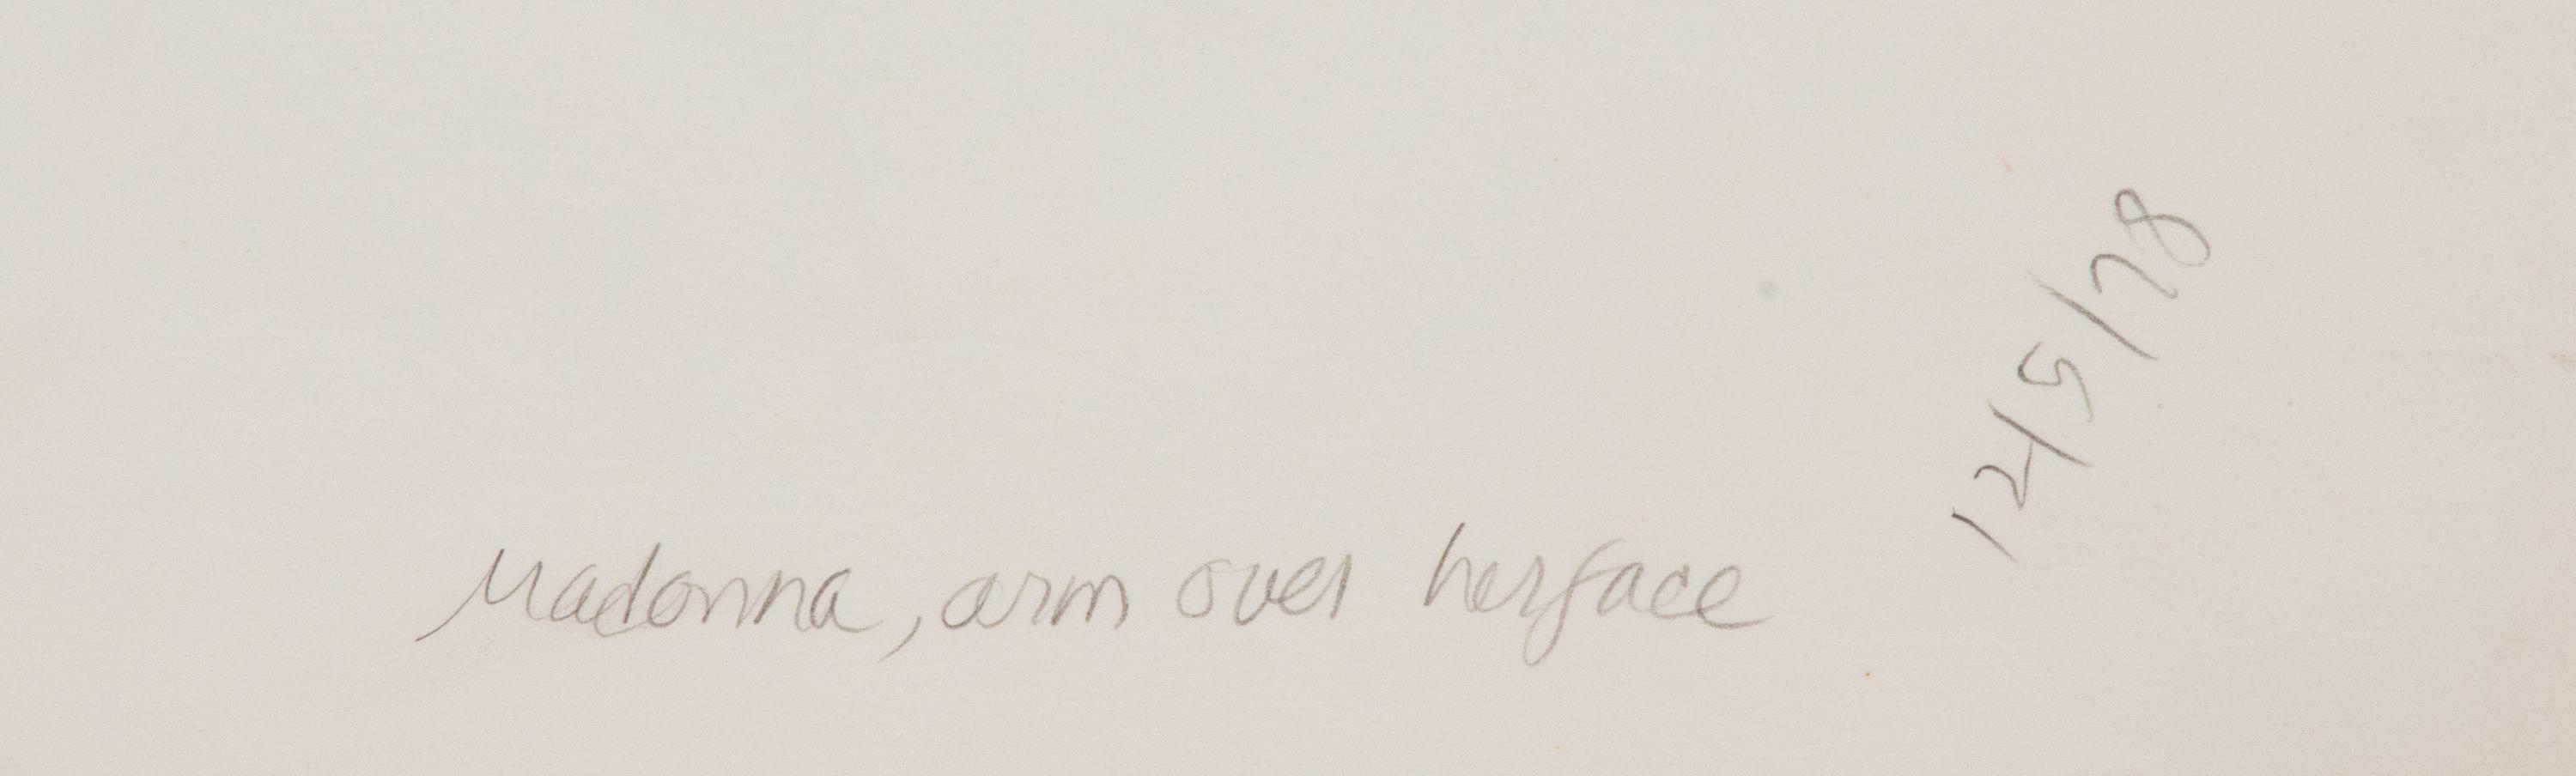 Madonna, arm over her face
12/5/78